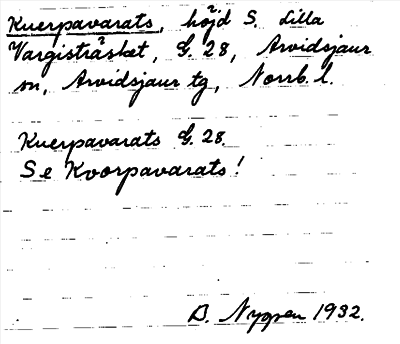 Kuerpavarats, höjd S. Lilla
Vargisträsket, G. 28, Arvidsjaur
sn, Arvidsjaur tg, Norrb. l.
Kuerpavarats G. 28.
Se Kvorpavarats!
B. Nygren 1932.